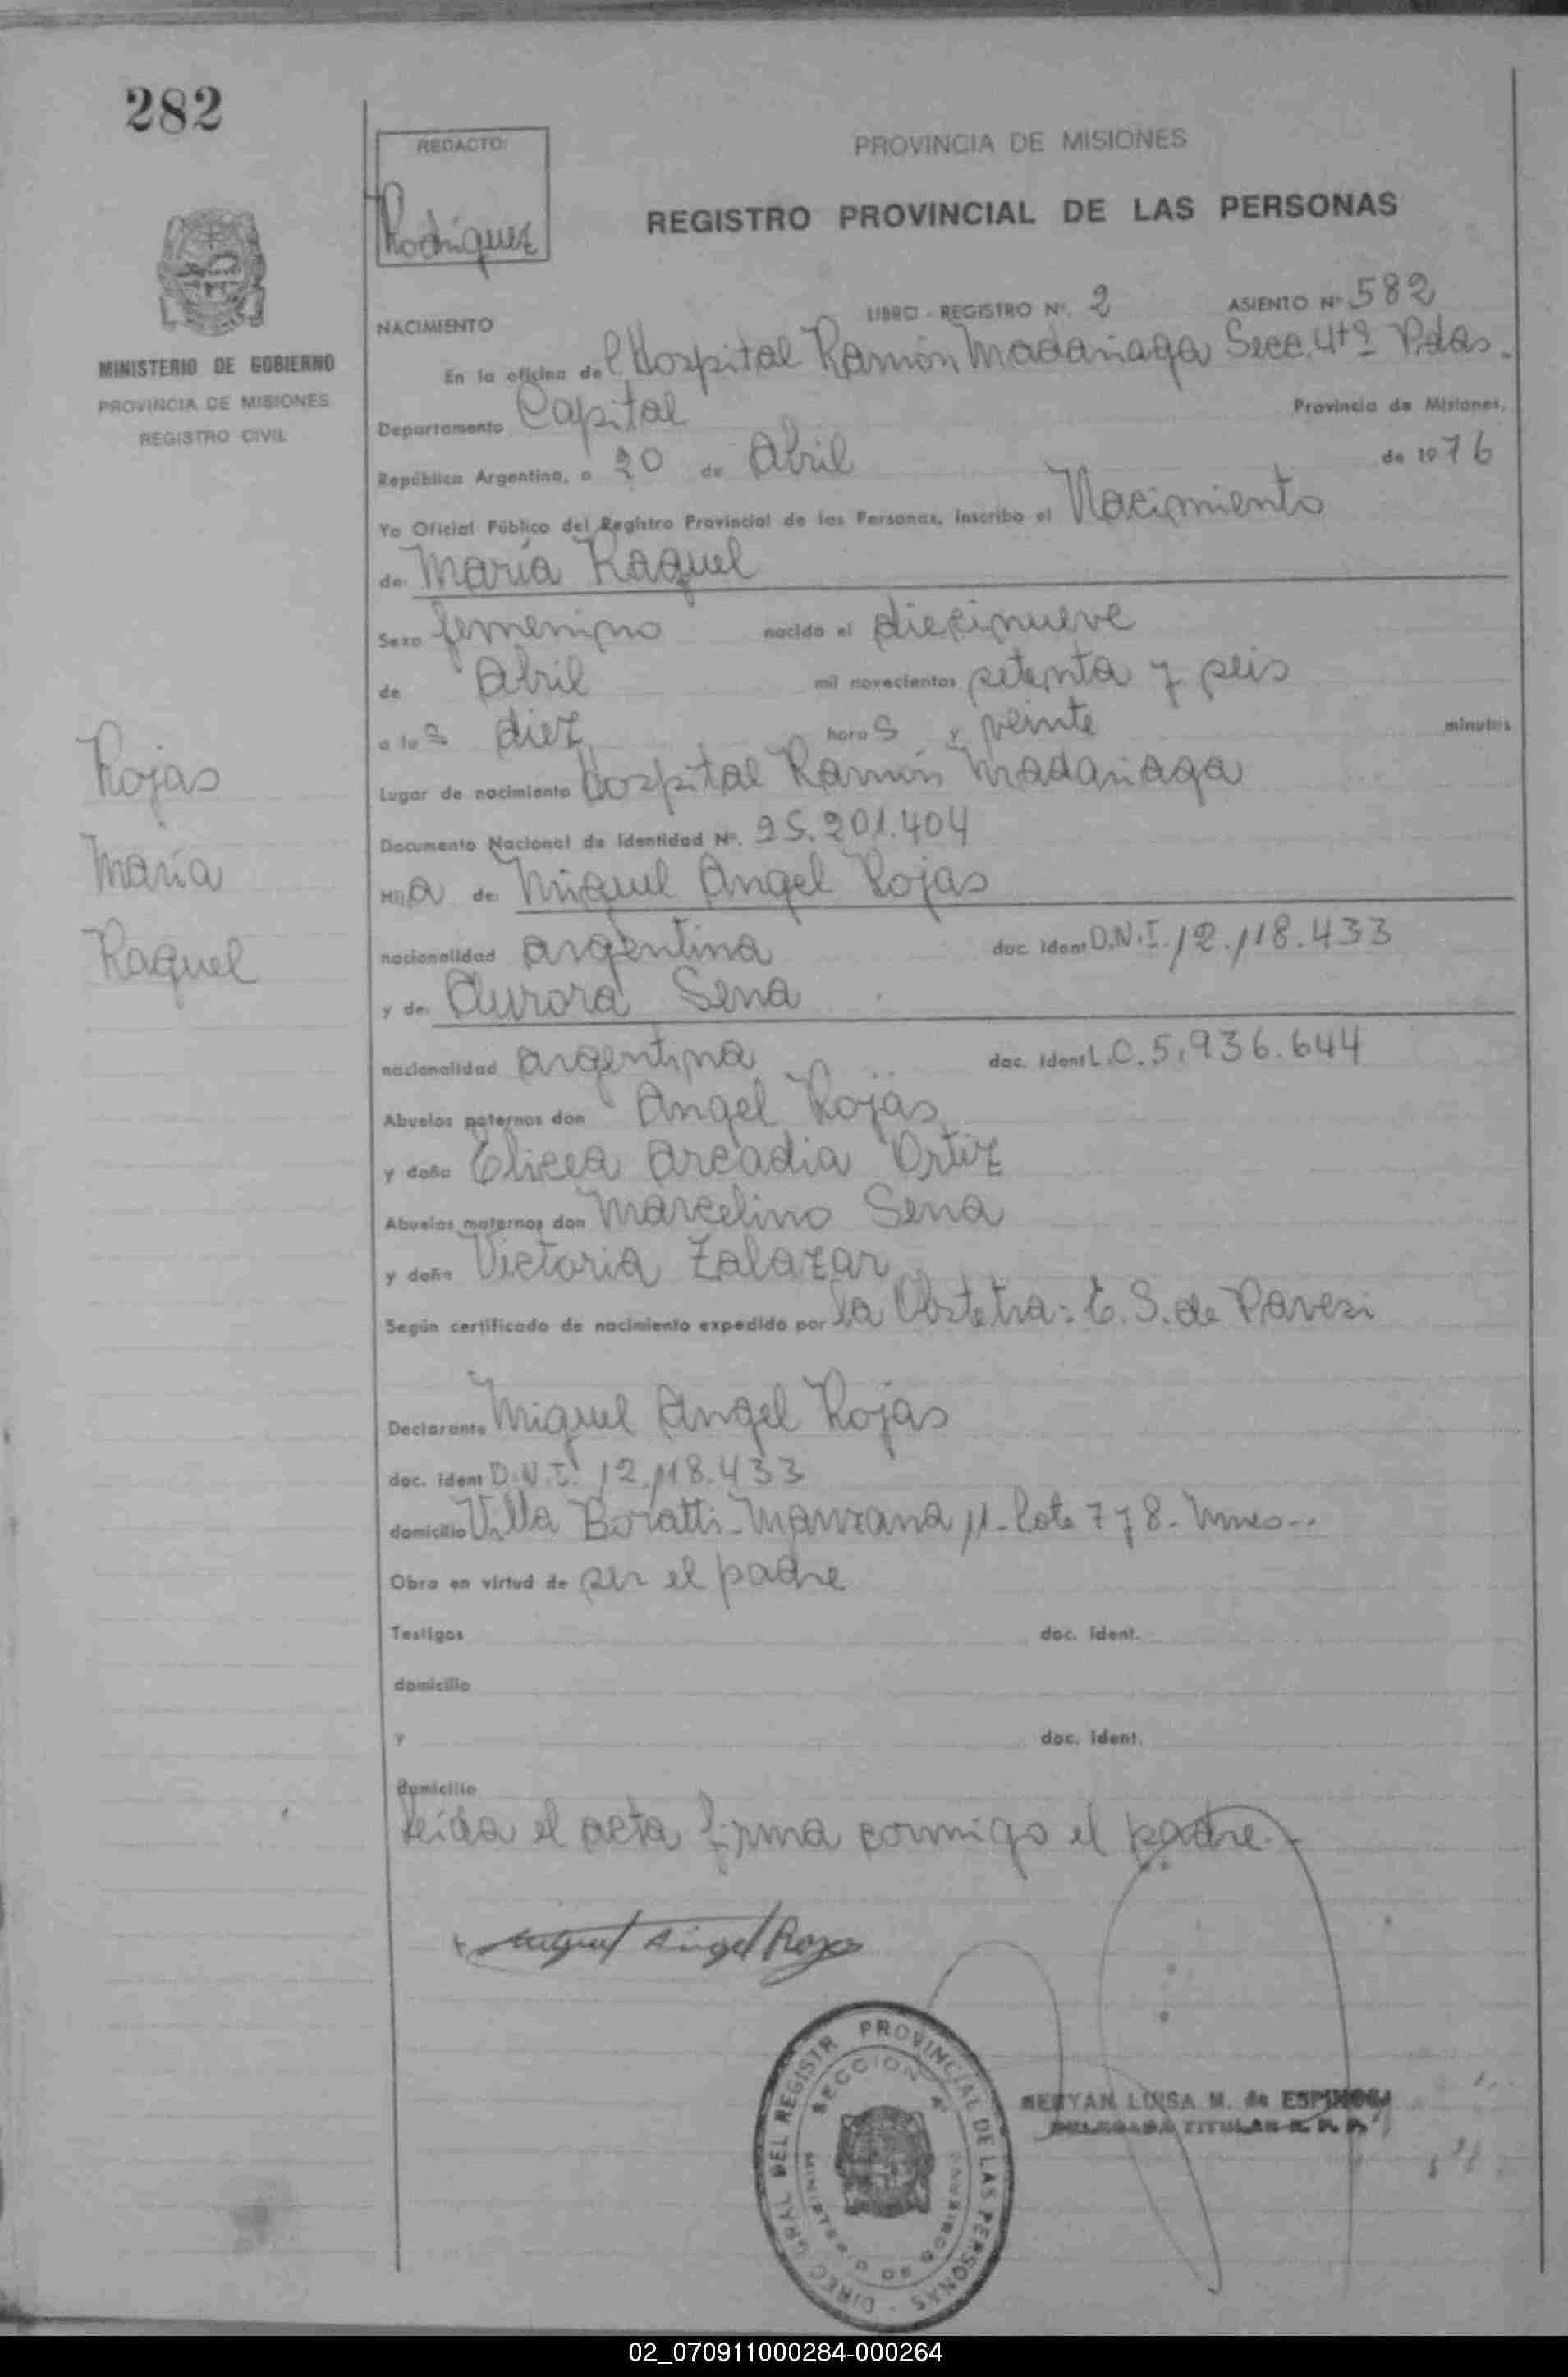 282
REDACTO:
Rodríguez
PROVINCIA DE MISIONES
REGISTRO PROVINCIAL DE LAS PERSONAS
MINISTERIO DE GOBIERNO
PROVINCIA DE MISIONES
REGISTRO CIVIL
LIBRO - REGISTRO Nº. 2 ASIENTO Nº 582
NACIMIENTO
En la oficina del Hospital Ramón Madariaga Secc. 4tª Pdas.
Departamento Capital Provincia de Misiones,
República Argentina, a 20 de Abril de 1976
Yo Oficial Público del Registro Provincial de las Personas, inscribo el Nacimiento
de: María Raquel
Sexo femenino nacido el diecinueve
de Abril mil novecientos setenta y seis
a las diez horas y veinte minutos
Lugar de nacimiento Hospital Ramón Madariaga
Documento Nacional de Identidad Nº. 25.201.404
Hija de: Miguel Angel Rojas
nacionalidad argentina doc. ident D.N.I. 12.118.433
y de: Aurora Sena
nacionalidad argentina doc. ident L.C. 5.936.644
Abuelos paternos don Angel Rojas
y doña Elicea Arcadia Ortiz
Abuelos maternos don Marcelino Sena
y doña Victoria Zalazar
Según certificado de nacimiento expedido por la Obstetra: E. S. de Pavesi
Rojas
María
Raquel
Declarante Miguel Angel Rojas
doc. ident D.N.I. 12.118.433
domicilio Villa Boratti - Manzana 11 - Lote 7 y 8 -
Obra en virtud de ser el padre
Testigos doc. ident.
domicilio
y doc. ident.
domicilio
Leída el acta firma conmigo el padre.-
Miguel Angel Rojas
DIREC. GRAL. DEL REGISTR PROVINCIAL DE LAS PERSONAS
SECCION
MINISTERIO DE GOBIERNO
LUISA M. de ESPINOSA
DELEGADA TITULAR R. P. P.
02_070911000284-000264